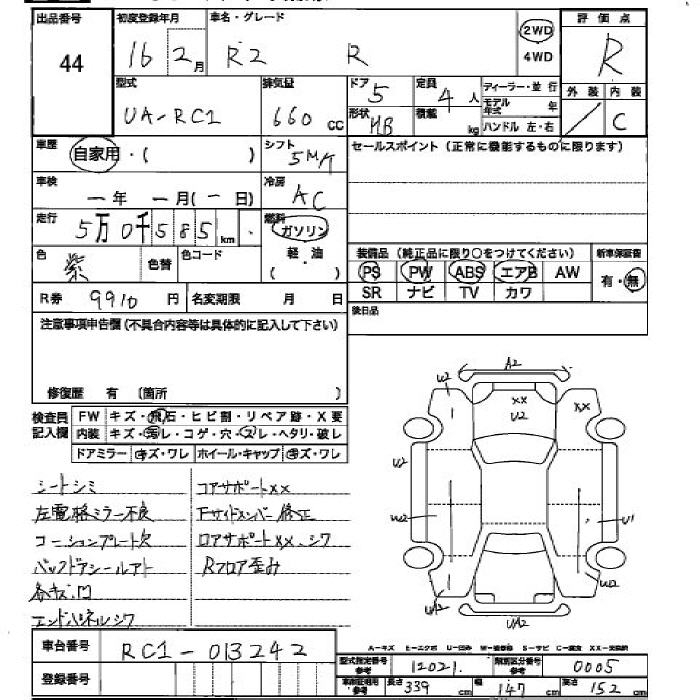 出品番号 初度登録年月 車名・グレード 評価点
44 16 2月 R2 R 2WD 4WD R
外装 内装
/ C
型式 排気量 ドア 定員 ディーラー・並行
UA-RC1 660cc 5 4人 モデル年式 年
形状 HB 積載 kg ハンドル 左・右
車歴 自家用・( ) シフト 5M/T セールスポイント(正常に機能するものに限ります)
車検 ー年 ー月(ー日) 冷房 AC
走行 5万0千585km 燃料 ガソリン
軽・油
( )
色 紫 色替 色コード 装備品(純正品に限り○をつけてください) 新車保証書
PS PW ABS エアB AW 有・無
R券 9910円 名変期限 月 日 SR ナビ TV カワ
注意事項申告欄(不具合内容等は具体的に記入して下さい) 後日品
修復歴 有 (箇所 )
検査員記入欄 FW キズ・飛石・ヒビ割・リペア跡・X要
内装 キズ・汚レ・コゲ・穴・スレ・ヘタリ・破レ
ドアミラー キズ・ワレ ホイール・キャップ キズ・ワレ
シートシミ コアサポートxx
左電格ミラー不良 Fサイドメンバー修正
コーションプレート欠 ロアサポートxx、シワ
バックドアシールアト Rフロア歪み
各キズ、凹
エンドパネルシワ
A2
U2 xx xx
U2
U2
W2 U1
W2
UA2 UA2
A-キズ E-エクボ U-凹み W-補修跡 S-サビ C-腐食 XX-交換済
車台番号 RC1-013242
型式指定番号 参考 12021. 類別区分番号 参考 0005
登録番号 車検証明書 参考 長さ 339cm 幅 147cm 高さ 152cm